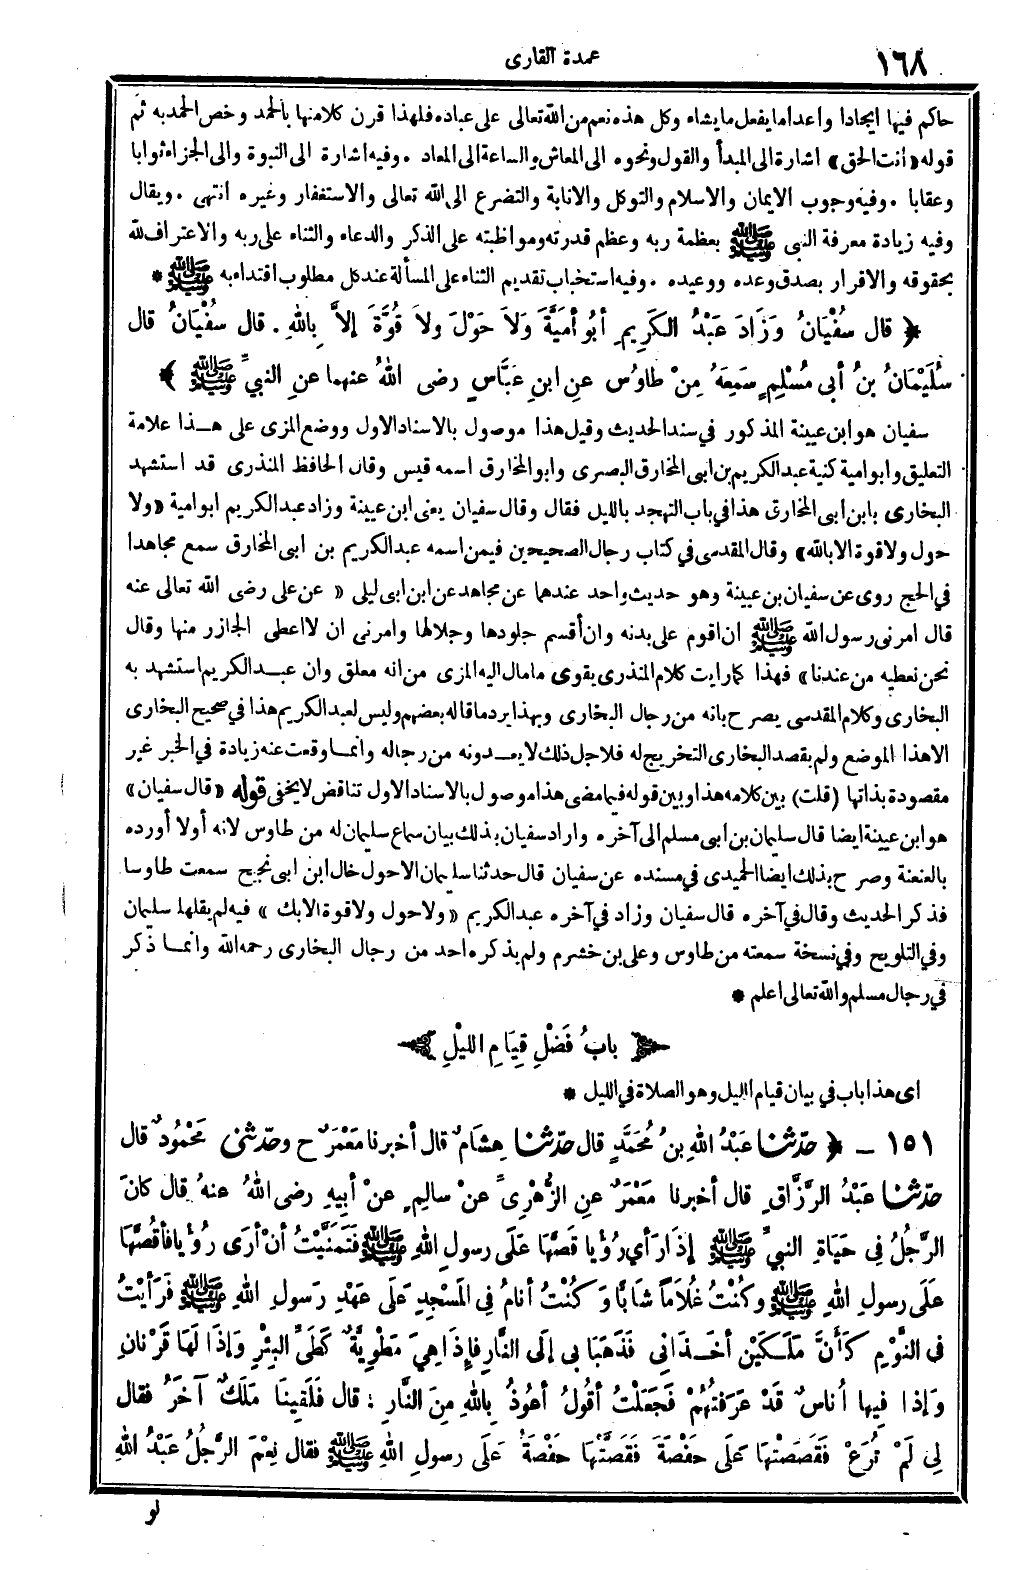 ١٦٨
عمدة القارى
حاكم فيها ايجادا واعداما يفعل ما يشاء وكل هذه نعم من الله تعالى على عباده فلهذا قرن كلامنها بالحمد وخص الحمد به ثم
قوله «أنت الحق» اشارة الى المبدأ والقول ونحوه الى المعاش والساعة الى المعاد . وفيه اشارة الى النبوة والى الجزاء ثوابا
وعقابا . وفيه وجوب الايمان والاسلام والتوكل والانابة والتضرع الى الله تعالى والاستغفار وغيره انتهى . ويقال
وفيه زيادة معرفة النبى ﷺ بعظمة ربه وعظم قدرته ومواظبته على الذكر والدعاء والثناء على ربه والاعتراف لله
بحقوقه والاقرار بصدق وعده ووعيده . وفيه استحباب تقديم الثناء على المسألة عند كل مطلوب اقتداء به ﷺ *
﴿ قال سُفْيَانُ وَزَادَ عَبْدُ الكَرِيمِ أبُو أمَيَّةَ وَلاَ حَوْلَ ولاَ قُوَّةَ إلاَّ بِاللهِ . قال سُفْيَانُ قال
سُلَيْمَانُ بنُ أبى مُسْلِمٍ سَمِعَهُ مِنْ طاوُسٍ عنِ ابنِ عَبَّاسٍ رضى اللهُ عنهما عنِ النبيِّ ﷺ ﴾
سفيان هو ابن عيينة المذكور في سند الحديث وقيل هذا موصول بالاسناد الاول ووضع المزى على هــذا علامة
التعليق وابو امية كنية عبد الكريم بن ابى المخارق البصرى وابو المخارق اسمه قيس وقال الحافظ المنذرى قد استشهد
البخارى بابن ابى المخارق هذا في باب التهجد بالليل فقال وقال سفيان يعنى ابن عيينة وزاد عبد الكريم ابو امية «ولا
حول ولا قوة الا بالله» وقال المقدسى في كتاب رجال الصحيحين فيمن اسمه عبد الكريم بن ابى المخارق سمع مجاهدا
في الحج روى عن سفيان بن عيينة وهو حديث واحد عندهما عن مجاهد عن ابن ابى ليلى « عن على رضى الله تعالى عنه
قال امرنى رسول الله ﷺ ان اقوم على بدنه وان أقسم جلودها وجلالها وامرنى ان لا اعطى الجازر منها وقال
نحن نعطيه من عندنا» فهذا كما رايت كلام المنذرى يقوى ما مال اليه المزى من انه معلق وان عبــد الكريم استشهد به
البخارى وكلام المقدسى يصرح بانه من رجال البخارى وبهذا يرد ما قاله بعضهم وليس لعبد الكريم هذا في صحيح البخارى
الا هذا الموضع ولم يقصد البخارى التخريج له فلاجل ذلك لا يعــدونه من رجاله وانمــا وقعت عنه زيادة في الخبر غير
مقصودة بذاتها (قلت) بين كلامه هذا وبين قوله فيما مضى هذا موصول بالاسناد الاول تناقض لا يخفى قوله «قال سفيان»
هو ابن عيينة ايضا قال سليمان بن ابى مسلم الى آخره واراد سفيان بذلك بيان سماع سليمان له من طاوس لانه أولا أورده
بالعنعنة وصرح بذلك ايضا الحميدى في مسنده عن سفيان قال حدثنا سليمان الاحول خال ابن ابى نجيح سمعت طاوسا
فذكر الحديث وقال في آخره قال سفيان وزاد في آخره عبد الكريم «ولا حول ولا قوة الا بك » فيه لم يقلها سليمان
وفي التلويح وفي نسخة سمعته من طاوس وعلى بن خشرم ولم يذكره احد من رجال البخارى رحمه الله وانمــا ذكر
في رجال مسلم والله تعالى اعلم *
﴿ بابُ فَضْلِ قِيَامِ اللَّيْلِ ﴾
اى هذا باب في بيان قيام الليل وهو الصلاة في الليل *
١٥١ ــ ﴿ حَدَّثَنَا عَبْدُ اللهِ بنُ مُحَمَّدٍ قال حَدَّثَنَا هِشَامٌ قال أخبرنا مَعْمَرٌ ح وحَدَّثَنى مَحْمُودٌ قال
حَدَّثَنَا عَبْدُ الرَّزَّاقِ قال أخبرنا مَعْمَرٌ عنِ الزُّهْرِىِّ عنْ سالِمٍ عنْ أبِيهِ رضى اللهُ عنهُ قال كانَ
الرَّجُلُ فى حَيَاةِ النبىِّ ﷺ إذَا رَأى رُؤْيا قَصَّهَا عَلَى رسولِ اللهِ ﷺ فَتَمَنَّيْتُ أنْ أرَى رُؤْيا فأقُصَّهَا
عَلَى رسولِ اللهِ ﷺ وكُنْتُ غُلاَمًا شَابًّا وَكُنْتُ أنامُ فى المَسْجِدِ عَلَى عَهْدِ رَسولِ اللهِ ﷺ فَرَأيْتُ
فى النَّوْمِ كَأنَّ مَلَكَيْنِ أخَــذَانِى فَذَهَبَا بى إلَى النَّارِ فإذَا هِىَ مَطْوِيَّةٌ كَطَىِّ البِئْرِ وَإذَا لَهَا قَرْنانِ
وَإذَا فِيها أُناسٌ قَدْ عَرَفتُهُمْ فَجَعَلْتُ أقُولُ أعُوذُ بِاللهِ مِنَ النَّارِ : قال فَلَقِينَا مَلَكٌ آخَرُ فقال
لِى لَمْ تُرَعْ فَقَصَصْتُهَا عَلَى حَفْصَةَ فَقَصَّتْهَا حَفْصَةُ عَلَى رسولِ اللهِ ﷺ فقال نِعْمَ الرَّجُلُ عَبْدُ اللهِ
لو